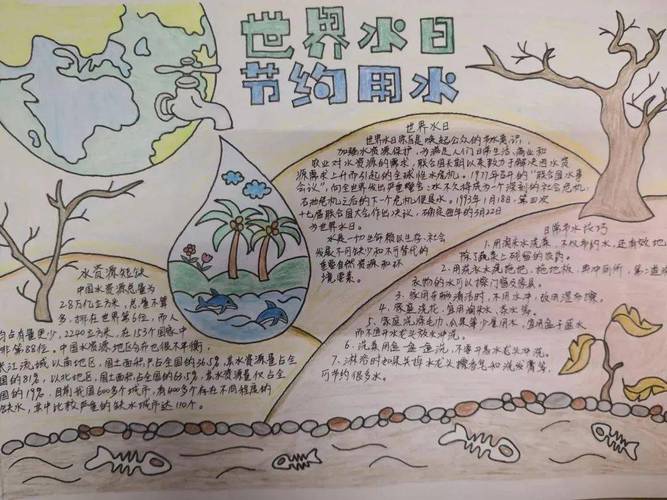 世界水日
节约用水
世界水日
世界水日宗旨是唤起公众的节水意识，
加强水资源保护，为满足人们日常生活、商业和
农业对水资源的需求，联合国长期以来致力于解决因水资
源需求上升而引起的全球性水危机。1977年召开的"联合国水事
会议"，向全世界发出严重警告：水不久将成为一个深刻的社会危机，
石油危机之后的下一个危机便是水。1993年1月18日，第四次
十七届联合国大会作出决议，确定每年的3月22日
为世界水日。
水是一切生命赖以生存，社会
发展不可缺少和不可替代的
重要自然资源和环
境要素。
水资源短缺
中国水资源总量为
2.8万亿立方米，总量不算
多，排在世界第6位，而人
均占有量更少，2240立方米，在153个国家中
排第88位。中国水资源地区分布也很不平衡，
长江流域以南地区，国土面积只占全国的36.5%，其水资源量占全
国的81%，以北地区，国土面积占全国的63.5%，其水资源量仅占全
国的19%，目前我国600多个城市，有400多个存在不同程度的
缺水，其中比较严重的缺水城市达110个。
日常节水技巧
1.用淘米水洗菜，不仅节约水，还有效地
除了蔬菜上残留的农药。
2.用洗衣水洗拖把、拖地板、再冲厕所，第二道
衣物的水可以擦门窗及家具。
3、家用车辆清洁时，不用水冲，改用湿布擦。
4、家庭浇花，宜用淘米水、茶水等。
5、家庭洗涤毛巾、瓜果等少量用水，宜用盆子盛水
而不宜开水龙头放水冲洗。
6、洗菜用盆一盆一盆洗，不要开着水龙头冲洗。
7、淋浴时如果关掉水龙头擦香皂和洗发膏等，
可节约很多水。